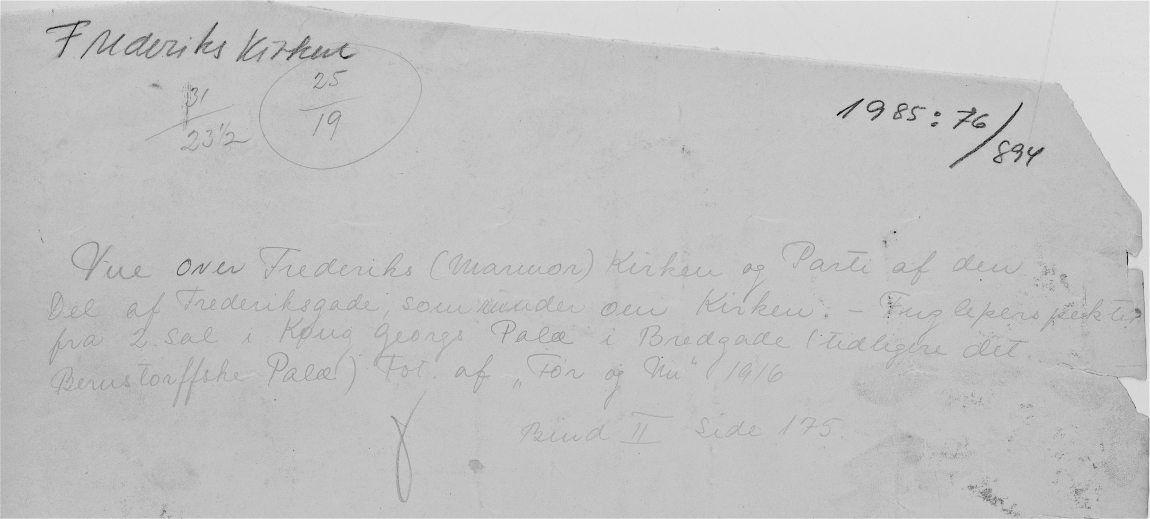 Frederiks Kirken
31
23 1/2
25
19
1985:76/894
Vue over Frederiks (Marmor) Kirken og Parti af den
Del af Frederiksgade, som runder om Kirken. - Fugleperspektiv
fra 2 Sal i Kong Georgs Palæ i Bredgade (tidligere det
Bernstorffske Palæ) Fot. af „Før og Nu" 1916
Bind II Side 175.